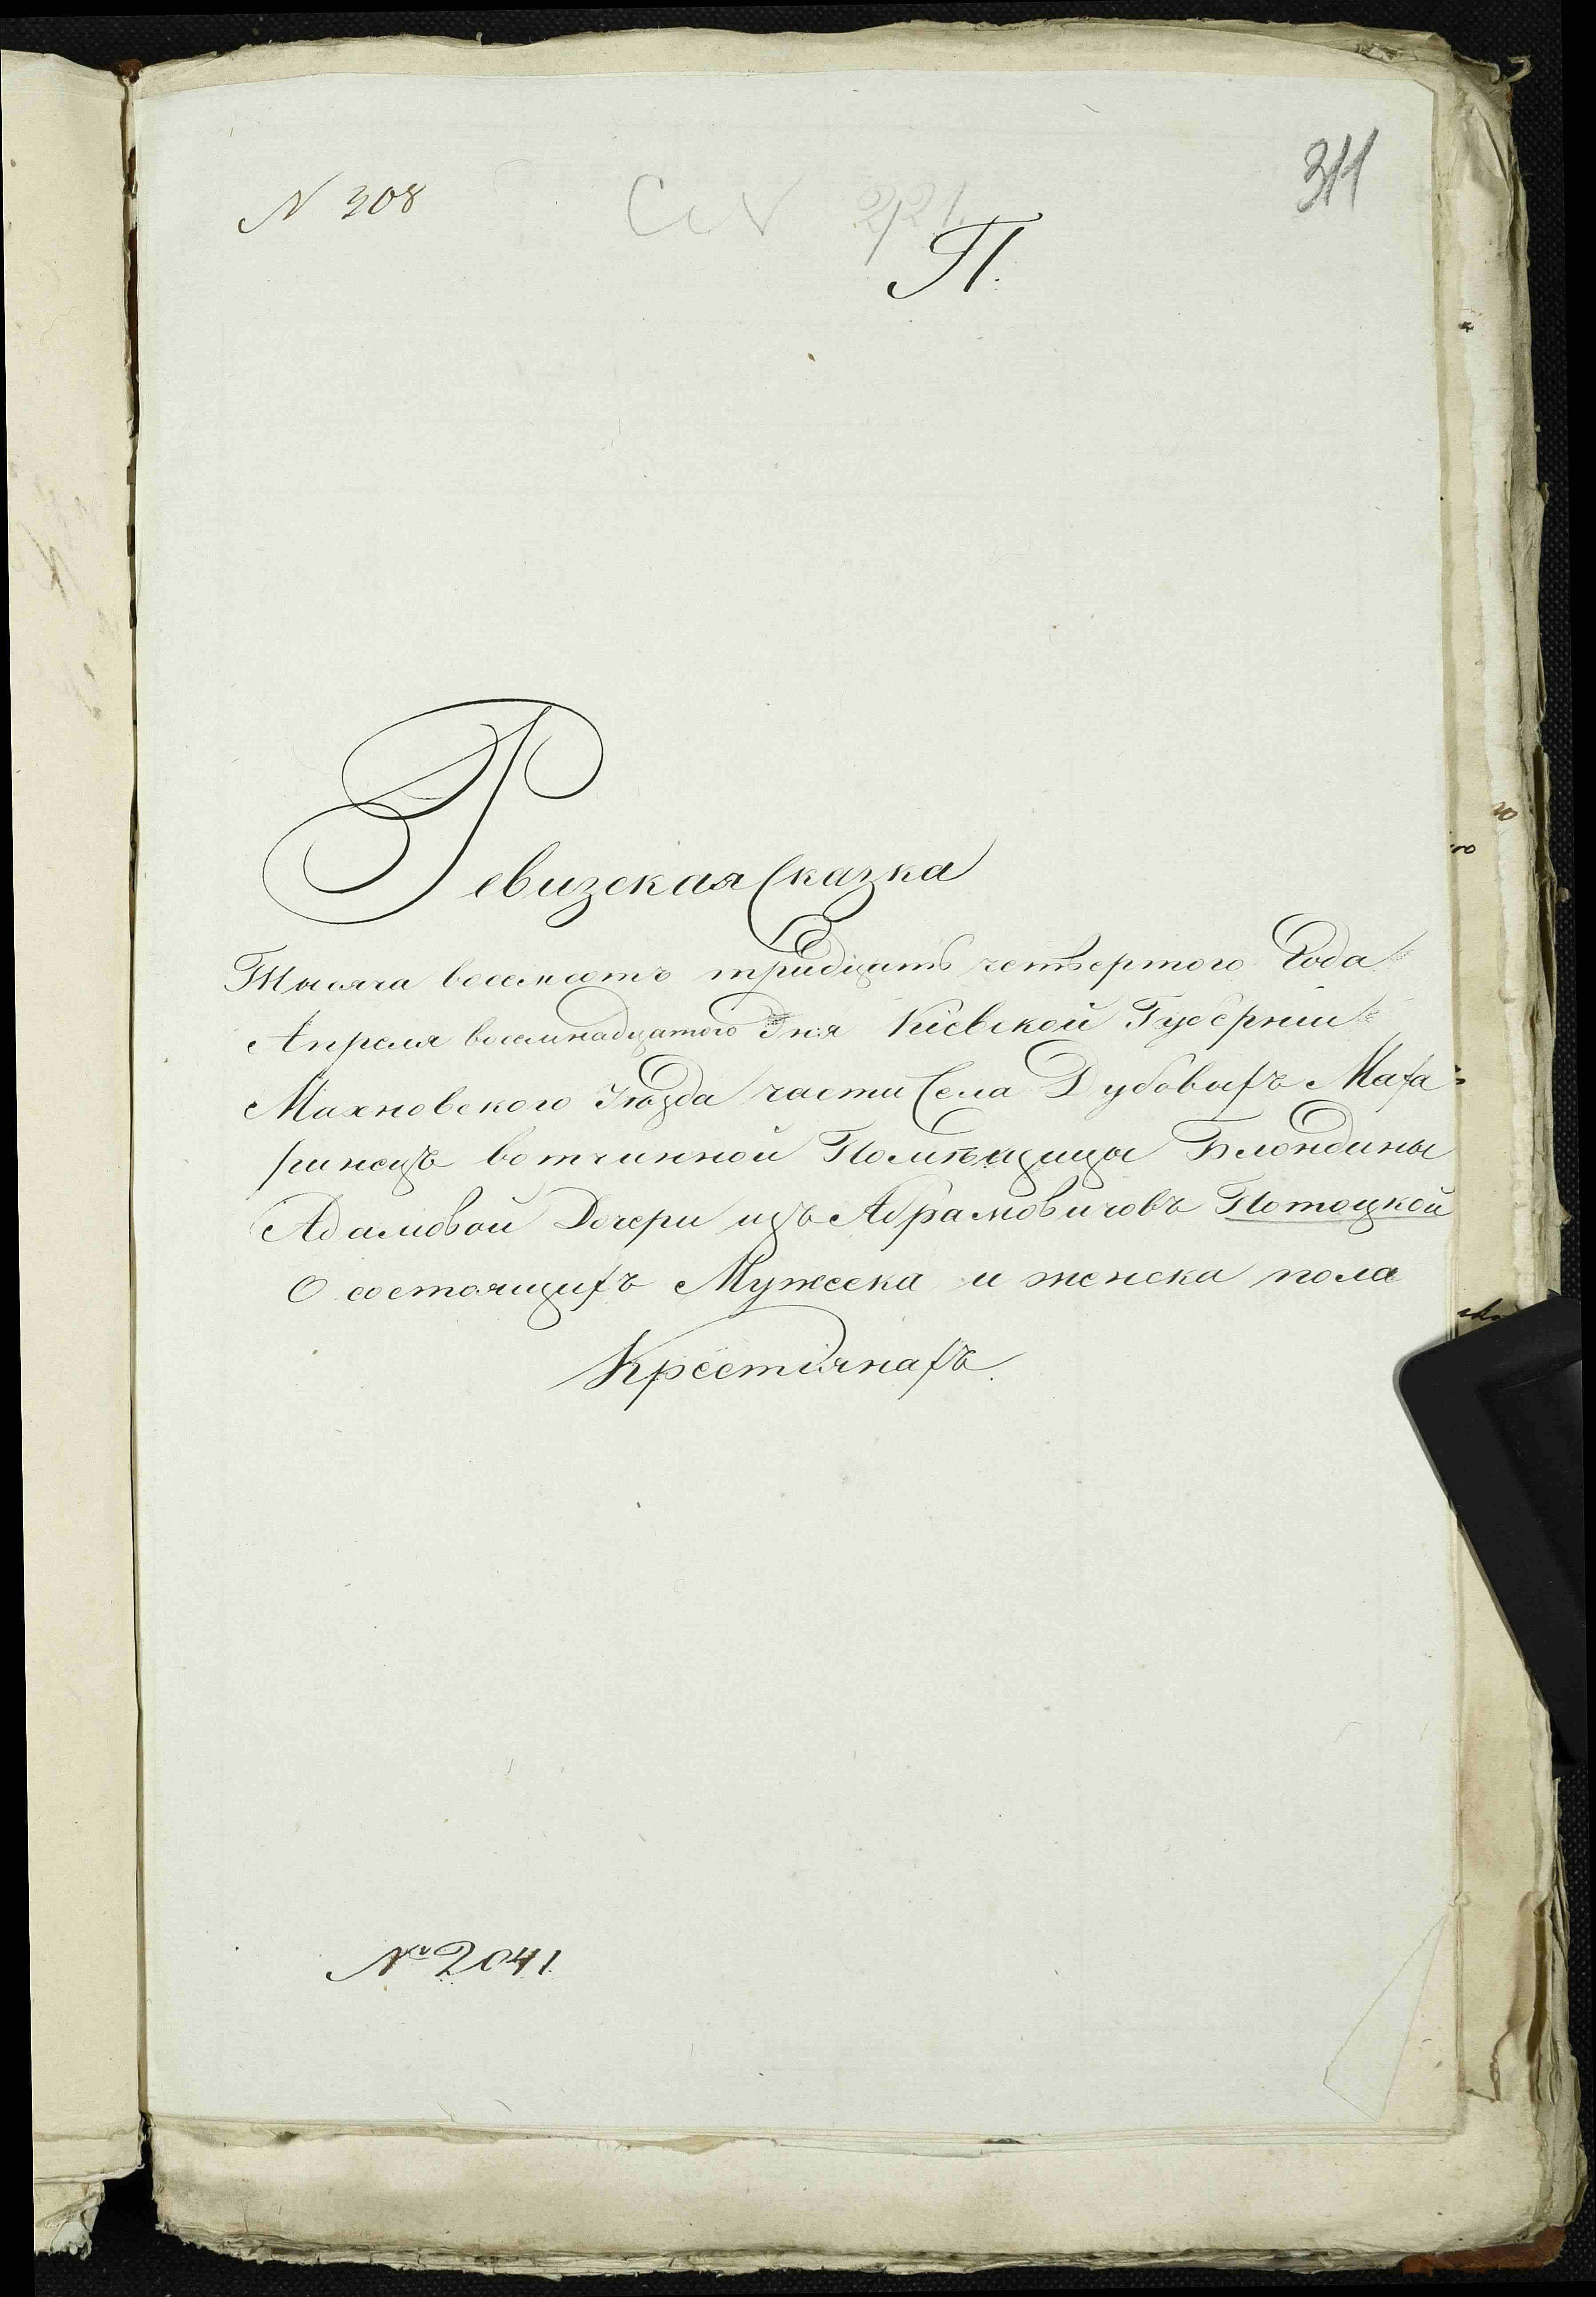 N 308
311
П.
Ревизская Сказка
Тысяча восемсотъ тридцать четвертого Года
Апреля восемнадцатого Дня Кіевской Губерніи
Махновского Уѣзда части Села Дубовыхъ Маха
ринецъ вотчинной Помѣщицы Блондины
Адамовой Дочери изъ Абрамовичовъ Потоцкой
О состоящихъ Мужеска и женска пола
Крестіянахъ.
№ 2041